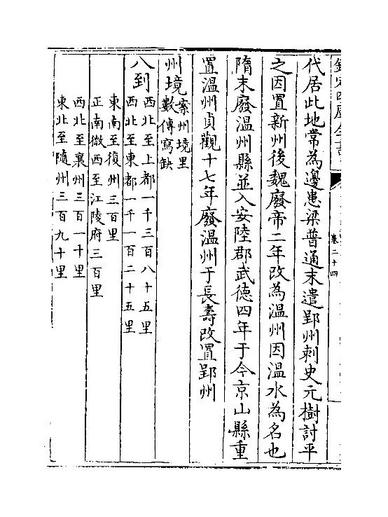 欽定四庫全書
卷二十四
代居此地常為邊患梁普通末遣郢州刺史元樹討平
之因置新州後魏廢帝二年改為溫州因溫水為名也
隋末廢溫州縣並入安陸郡武德四年于今京山縣重
置溫州貞觀十七年廢溫州于長壽改置郢州
州境案州境里
數傳寫缺
八到
西北至上都一千三百八十五里
西北至東都一千一百二十五里
東南至復州三百里
正南微西至江陵府三百里
西北至襄州三百一十里
東北至隨州三百九十里